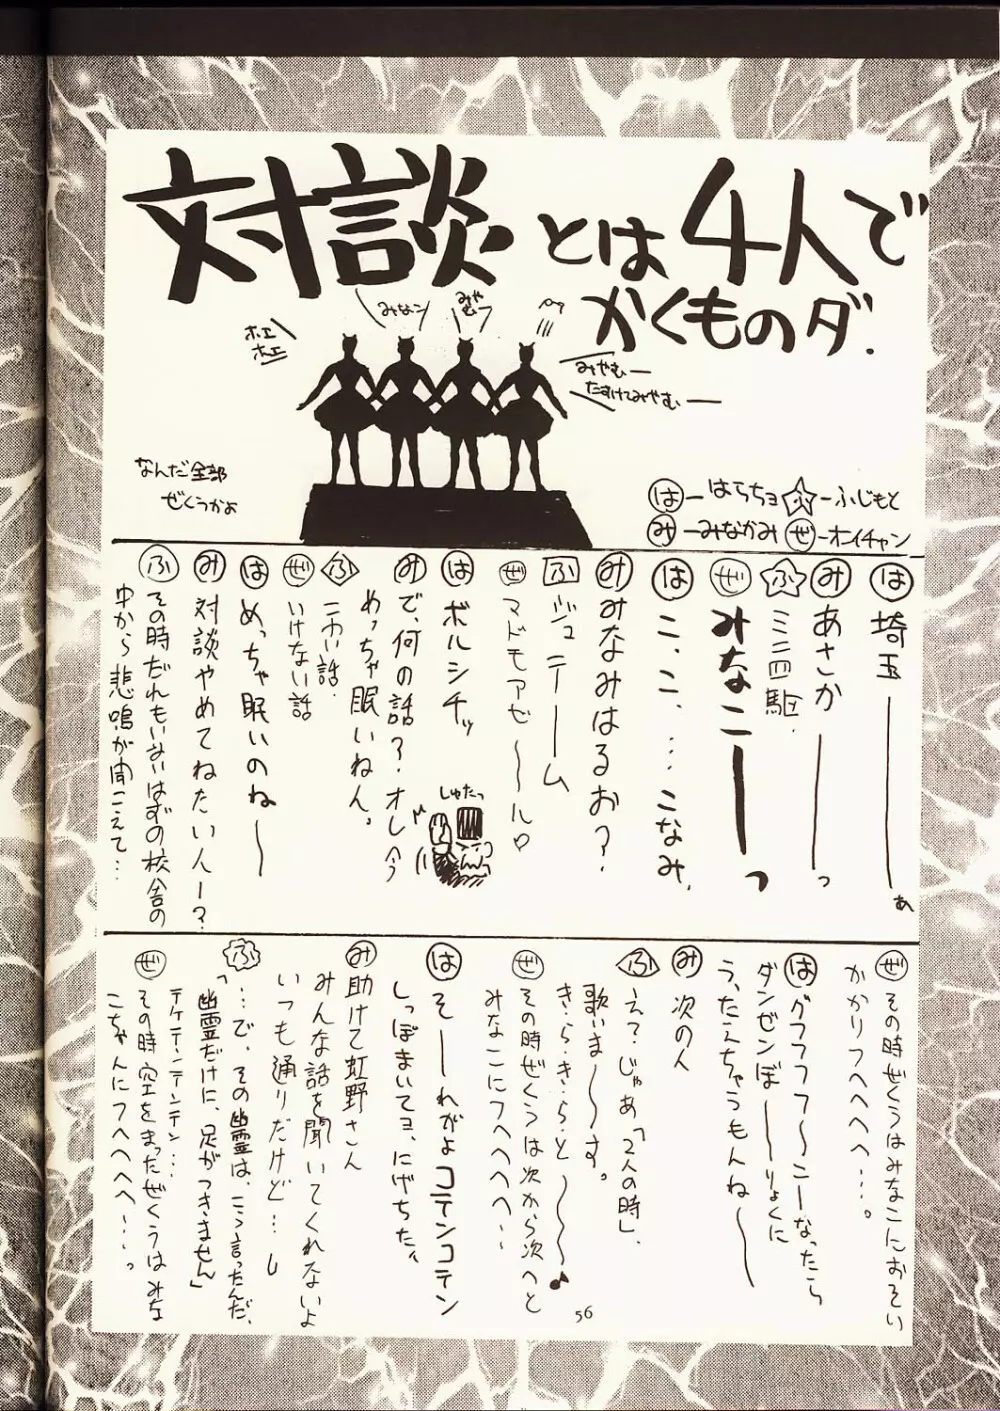 対談とは4人で
かくものダ.
みなコ
みや
むつ
ホエ
ホエ
みやむー
たすけてみやむ——
なんだ全部
ぜくうかよ
は－はらちョ ふ－ふじもと
み－みなかみ ぜ－オイチャン
は 埼玉————ぁ
み あさか————っ
ふ ミニ四駆.
ぜ みなこー——っ
は こ、こ、…こなみ.
み みなみはるお?
ふ ジュテーーム
ぜ マドモアゼ〜〜ル♡
は ボルシチッ
み で、何の話?オレ今
めっちゃ眠いねん。
ふ こわい話.
ぜ いけない話
は めっちゃ眠いのね〜
み 対談やめてねたい人ー?
ふ その時だれもいないはずの校舎の
中から悲鳴が聞こえて…
しゅたっ
ぜ その時ぜくうはみなこにおそい
かかりフヘヘヘヘ…。
は グフフフフ〜こーなったら
ダンゼンぼ——りょくに
うったえちゃうもんね〜〜
み 次の人
ふ え?じゃあ「2人の時」、
歌いま〜〜す。
き・ら・き・ら・と〜〜♪
ぜ その時ぜくうは次から次へと
みなこにフヘヘヘヘ…
は そ——れがよコテンコテン
しっぽまいてョ、にげちた。
み 助けて虹野さん
みんな話を聞いてくれないよ
いつも通りだけど…し
ふ 「…で、その幽霊は、こう言ったんだ、
幽霊だけに、足がつきません」
テケテンテンテン…
ぜ その時空をまったぜくうはみな
こちゃんにフヘヘヘヘ…。
56